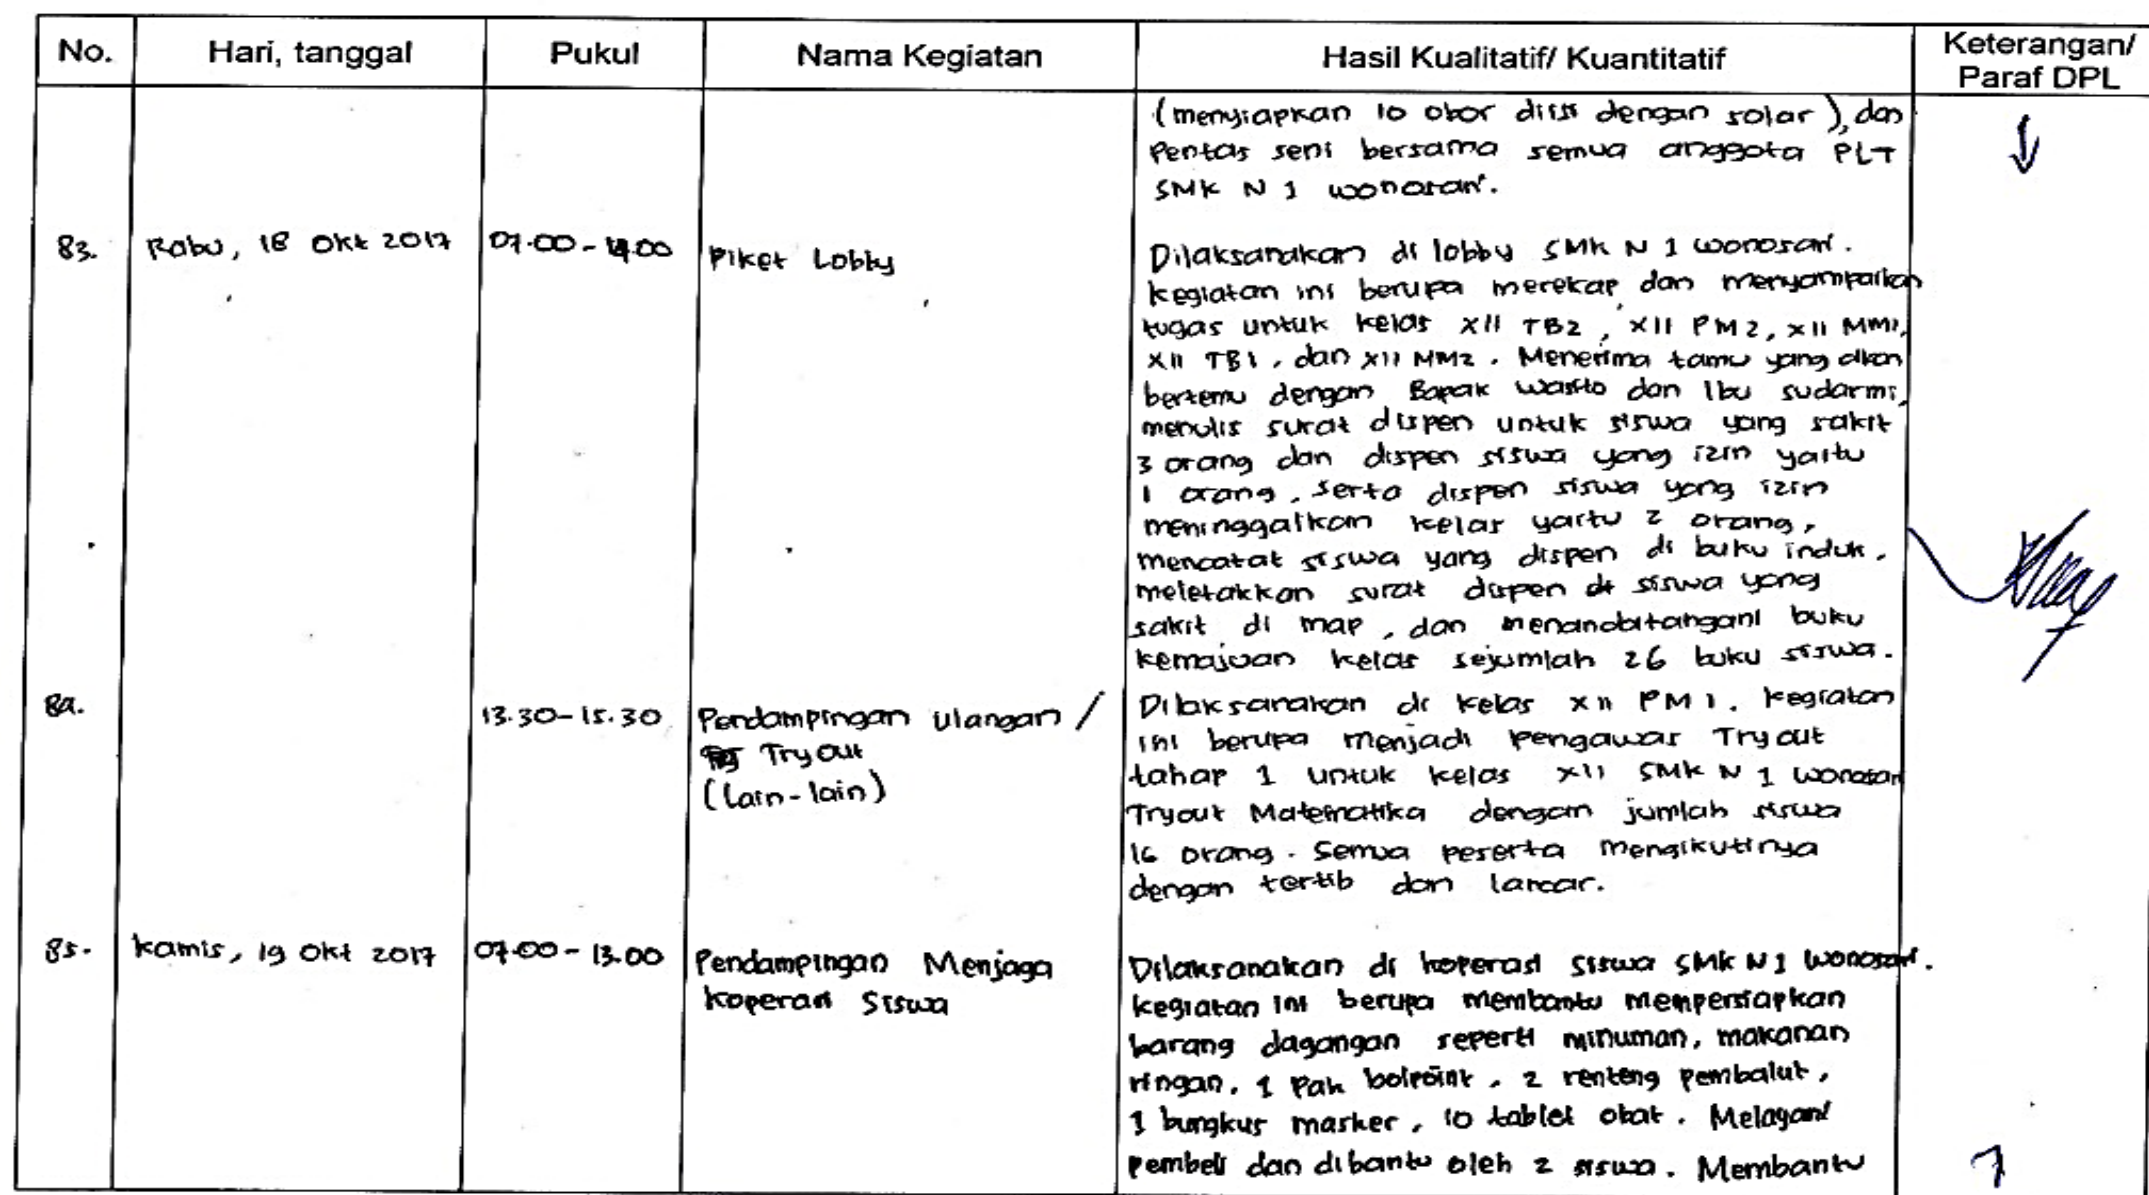 No. Hari, tanggal Pukul Nama Kegiatan Hasil Kualitatif/ Kuantitatif Keterangan/ Paraf DPL
(menyiapkan 10 obor diisi dengan solar), dan
Pentas seni bersama semua anggota PLT
SMK N 1 wonosari.
83. Rabu, 18 Okt 2017 07.00 - 14.00 Piket Lobby Dilaksanakan di lobby SMK N 1 wonosari.
kegiatan ini berupa merekap dan menyampaikan
tugas untuk kelas XII TB2, XII PM2, XII MM1,
XII TB1, dan XII MM2. Menerima tamu yang akan
bertemu dengan Bapak Wasito dan Ibu sudarmi,
menulis surat dispen untuk siswa yang sakit
3 orang dan dispen siswa yang izin yaitu
1 orang, serta dispen siswa yang izin
meninggalkan kelas yaitu 2 orang,
mencatat siswa yang dispen di buku induk,
meletakkan surat dispen siswa yang
sakit di map, dan menandatangani buku
kemajuan kelas sejumlah 26 buku siswa.
84. 13.30 - 15.30 Pendampingan Ulangan / Dilaksanakan di kelas XII PM 1. kegiatan
Tryout ini berupa menjadi pengawas Tryout
(lain-lain) tahap 1 untuk kelas XII SMK N 1 wonosari
Tryout Matematika dengan jumlah siswa
16 orang. Semua peserta mengikutinya
dengan tertib dan lancar.
85. Kamis, 19 Okt 2017 07.00 - 13.00 Pendampingan Menjaga Dilaksanakan di koperasi siswa SMK N 1 Wonosari.
koperasi Siswa kegiatan ini berupa membantu mempersiapkan
barang dagangan seperti minuman, makanan
ringan, 1 Pak bolpoint, 2 renteng pembalut,
1 bungkus masker, 10 tablet obat. Melayani
pembeli dan dibantu oleh 2 siswa. Membantu